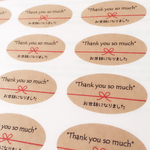 "Thank you so much"
お世話になりました
"Thank you so much"
お世話になりました
"Thank you so much"
お世話になりました
"Thank you so much"
お世話になりました
"Thank you so much"
お世話になりました
"Thank you so much"
お世話になりました
"Thank you so much"